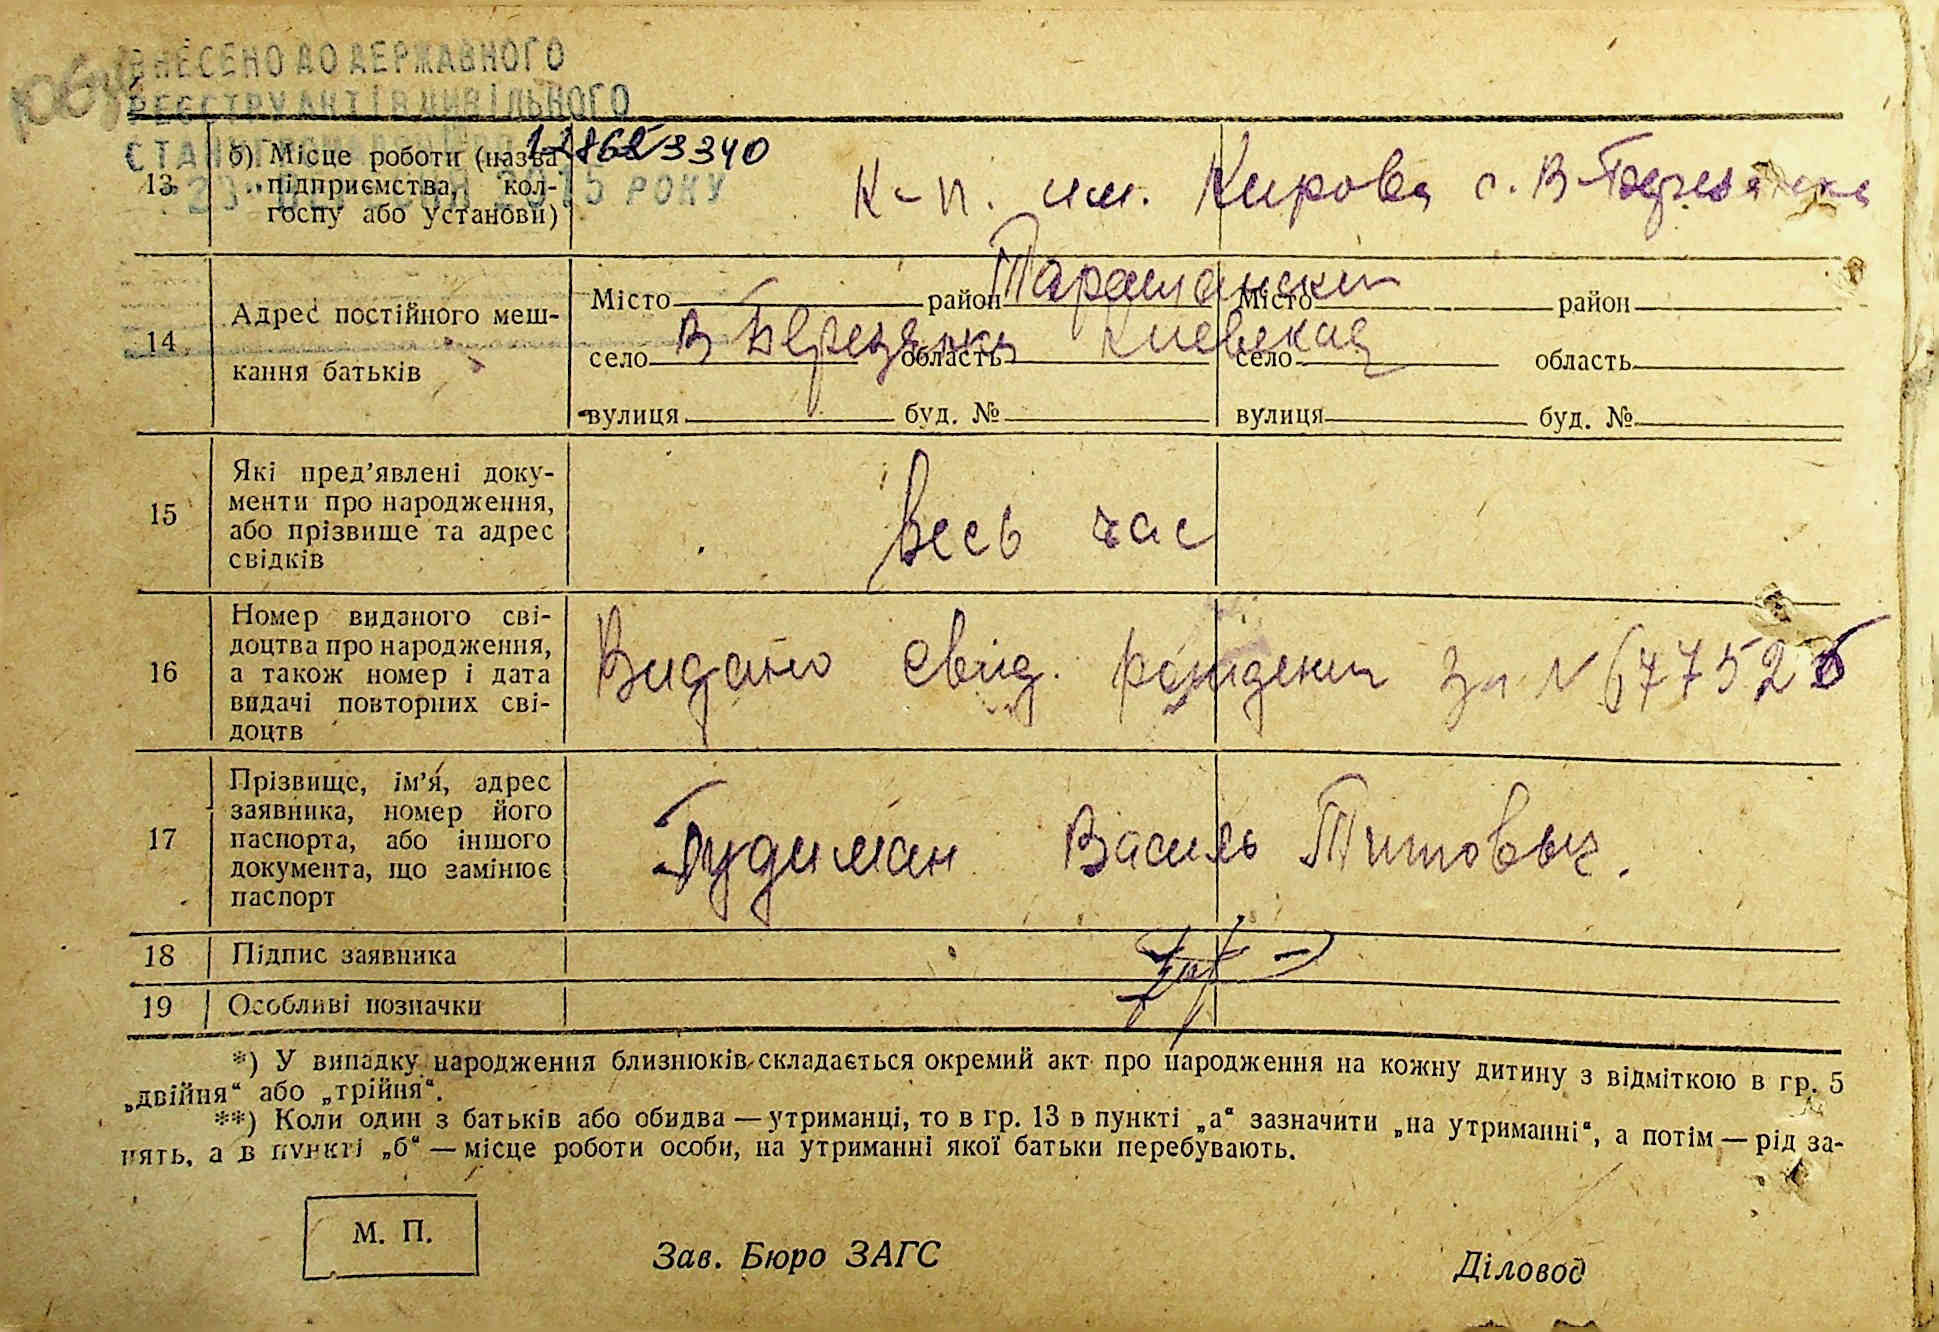 ВНЕСЕНО ДО ДЕРЖАВНОГО
РЕЄСТРУ АКТІВ ЦИВІЛЬНОГО
РОКУ
13
б) Місце роботи (назва
підприємства, кол-
госпу або установи)
К-п. им. Кирова с. В-Березянка
14
Адрес постійного меш-
кання батьків
Місто район Таращанский Місто район
село В Березянка область Киевская село область
вулиця буд. № вулиця буд. №
15
Які пред’явлені доку-
менти про народження,
або прізвище та адрес
свідків
весь час
16
Номер виданого сві-
доцтва про народження,
а також номер і дата
видачі повторних сві-
доцтв
Видано свид. рождени за N 677526
17
Прізвище, ім’я, адрес
заявника, номер його
паспорта, або іншого
документа, що замінює
паспорт
Гудиман Василь Титовыч.
18
Підпис заявника
19
Особливі позначки
*) У випадку народження близнюків складається окремий акт про народження на кожну дитину з відміткою в гр. 5
„двійня“ або „трійня“.
**) Коли один з батьків або обидва — утриманці, то в гр. 13 в пункті „а“ зазначити „на утриманні“, а потім — рід за-
нять, а в пункті „б“ — місце роботи особи, на утриманні якої батьки перебувають.
М. П.
Зав. Бюро ЗАГС
Діловод